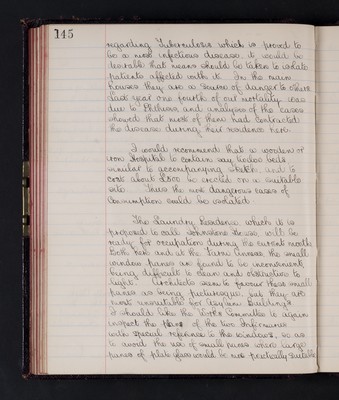 145
regarding Tuberculosis which is proved to
be a most infectious disease, it would be
desirable that means should be taken to isolate
patients affected with it. In the main
houses they are a source of danger to others
Last year one fourth of our mortality was
due to Phthisis and analyses of the cases
showed that most of them had contracted
the disease during their residence here.
I would recommend that a wooden or
iron Hospital to contain say twelve beds
similar to accompanying sketch and to
cost about £500 be erected on a suitable
site. Thus the more dangerous cases of
Consumption could be isolated.
The Laundry Residence which it is
proposed to call Johnstone House will be
ready for occupation during the current month
Both here and at the Farm Annexe the small
window panes are found to be inconvenient
being difficult to clean and obstructive to
light. Architects seem to favour these small
panes as being picturesque, but they are
most unsuitable for Asylum Buildings
I should like the Works Committee to again
inspect the plans of the two Infirmaries
with special reference to the windows, so as
to avoid the use of small panes where large
panes of plate glass would be more practically suitable